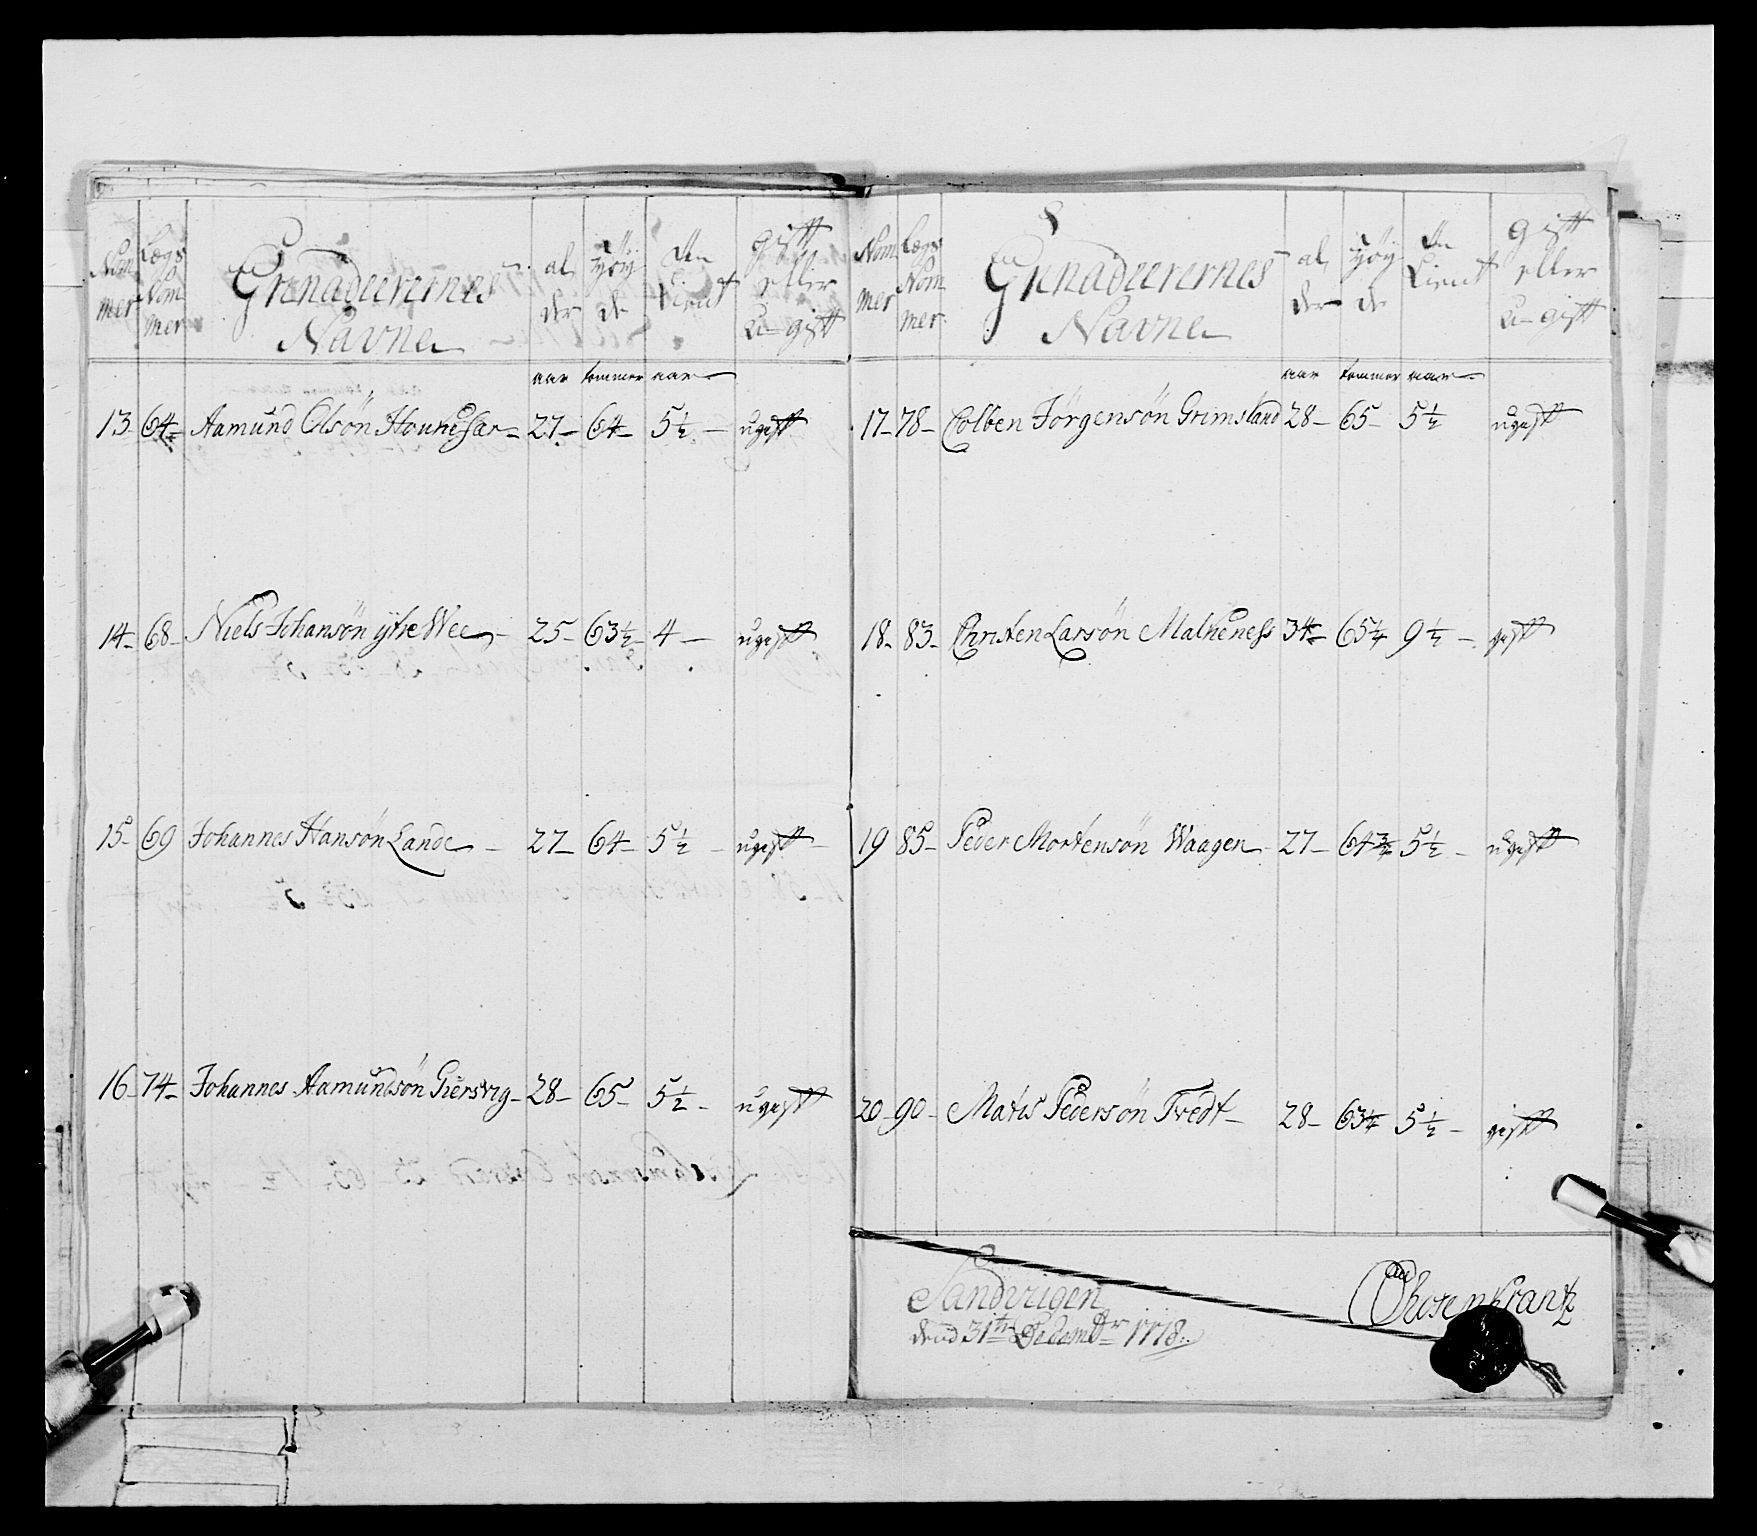 Nom mer | Lægs Nom mer | Grenadeerernes Navne | al der | Høy de | Tien Tient | gift eller u-gift
aar tommer aar
13 64 Aamund Olsön - 27 - 64 - 5½ - ugift
14 - 68 - Niels Johansön ytre Wee - 25 - 63½ - 4 - ugift
15 - 69 Johannes Hansön Lande - 27 - 64 - 5½ - ugift
16 - 74 - Johannes Aamundsön Giersvig - 28 - 65 - 5½ - ugift
Nom mer | Lægs Nom mer | Grenadeerernes Navne | al der | Høy de | Tient | gift eller u-gift
aar tommer aar
17 - 78 - Colben Jörgensön Grimsland 28 - 65 - 5½ ugift
18 - 83 - Christen Larsön Malheness 34 - 65¼ 9½ - gift
19 85 - Peder Mortensön Waagen - 27 - 64¾ 5½ - ugift
20 - 90 - Matis Pedersön Tvedt - 28 - 63¼ 5½ - gift
Sandvigen
dend 31te Decembr 1778.